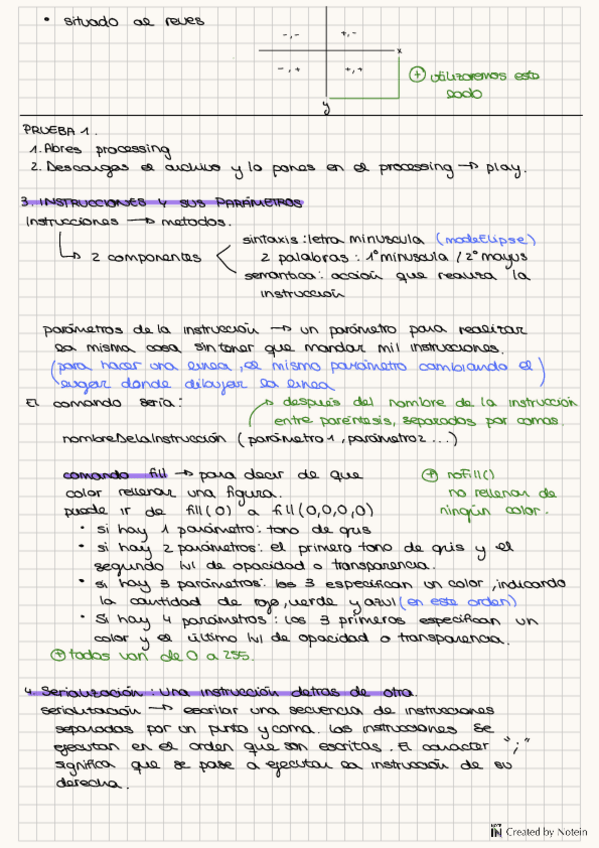 • situado al reves
-,-
+,-
x
-,+
+,+
⊕ utilizaremos este
lado
y
PRUEBA 1.
1. Abres processing
2. Descargas el archivo y lo pones en el processing → play.
3. INSTRUCCIONES Y SUS PARÁMETROS
Instrucciones → metodos.
↳ 2 componentes
sintaxis: letra minuscula (modeElipse)
2 palabras: 1º minuscula / 2º mayus
semantica: acción que realiza la
instrucción
parámetros de la instrucción → un parámetro para realizar
la misma cosa sin tener que mandar mil instrucciones.
(para hacer una linea, el mismo parámetro cambiando el
lugar donde dibujar la linea)
El comando sería:
→ después del nombre de la instrucción
entre paréntesis, separados por comas.
nombreDeLaInstrucción (parámetro1, parámetro2...)
comando fill → para decir de que
color rellenar una figura.
puede ir de fill(0) a fill(0,0,0,0)
⊕ noFill()
no rellenar de
ningún color.
• si hay 1 parámetro: tono de gris
• si hay 2 parámetros: el primero tono de gris y el
segundo lvl de opacidad o transparencia.
• si hay 3 parámetros: los 3 especifican un color, indicando
la cantidad de rojo, verde y azul (en este orden)
• Si hay 4 parámetros: los 3 primeros especifican un
color y el último lvl de opacidad o transparencia.
⊕ todos van de 0 a 255.
4. Serialización: una instrucción detras de otra.
serialización → escribir una secuencia de instrucciones
separadas por un punto y coma. Las instrucciones se
ejecutan en el orden que son escritas. El caracter ";"
significa que se pase a ejecutar la instrucción de su
derecha.
NOTE IN Created by Notein